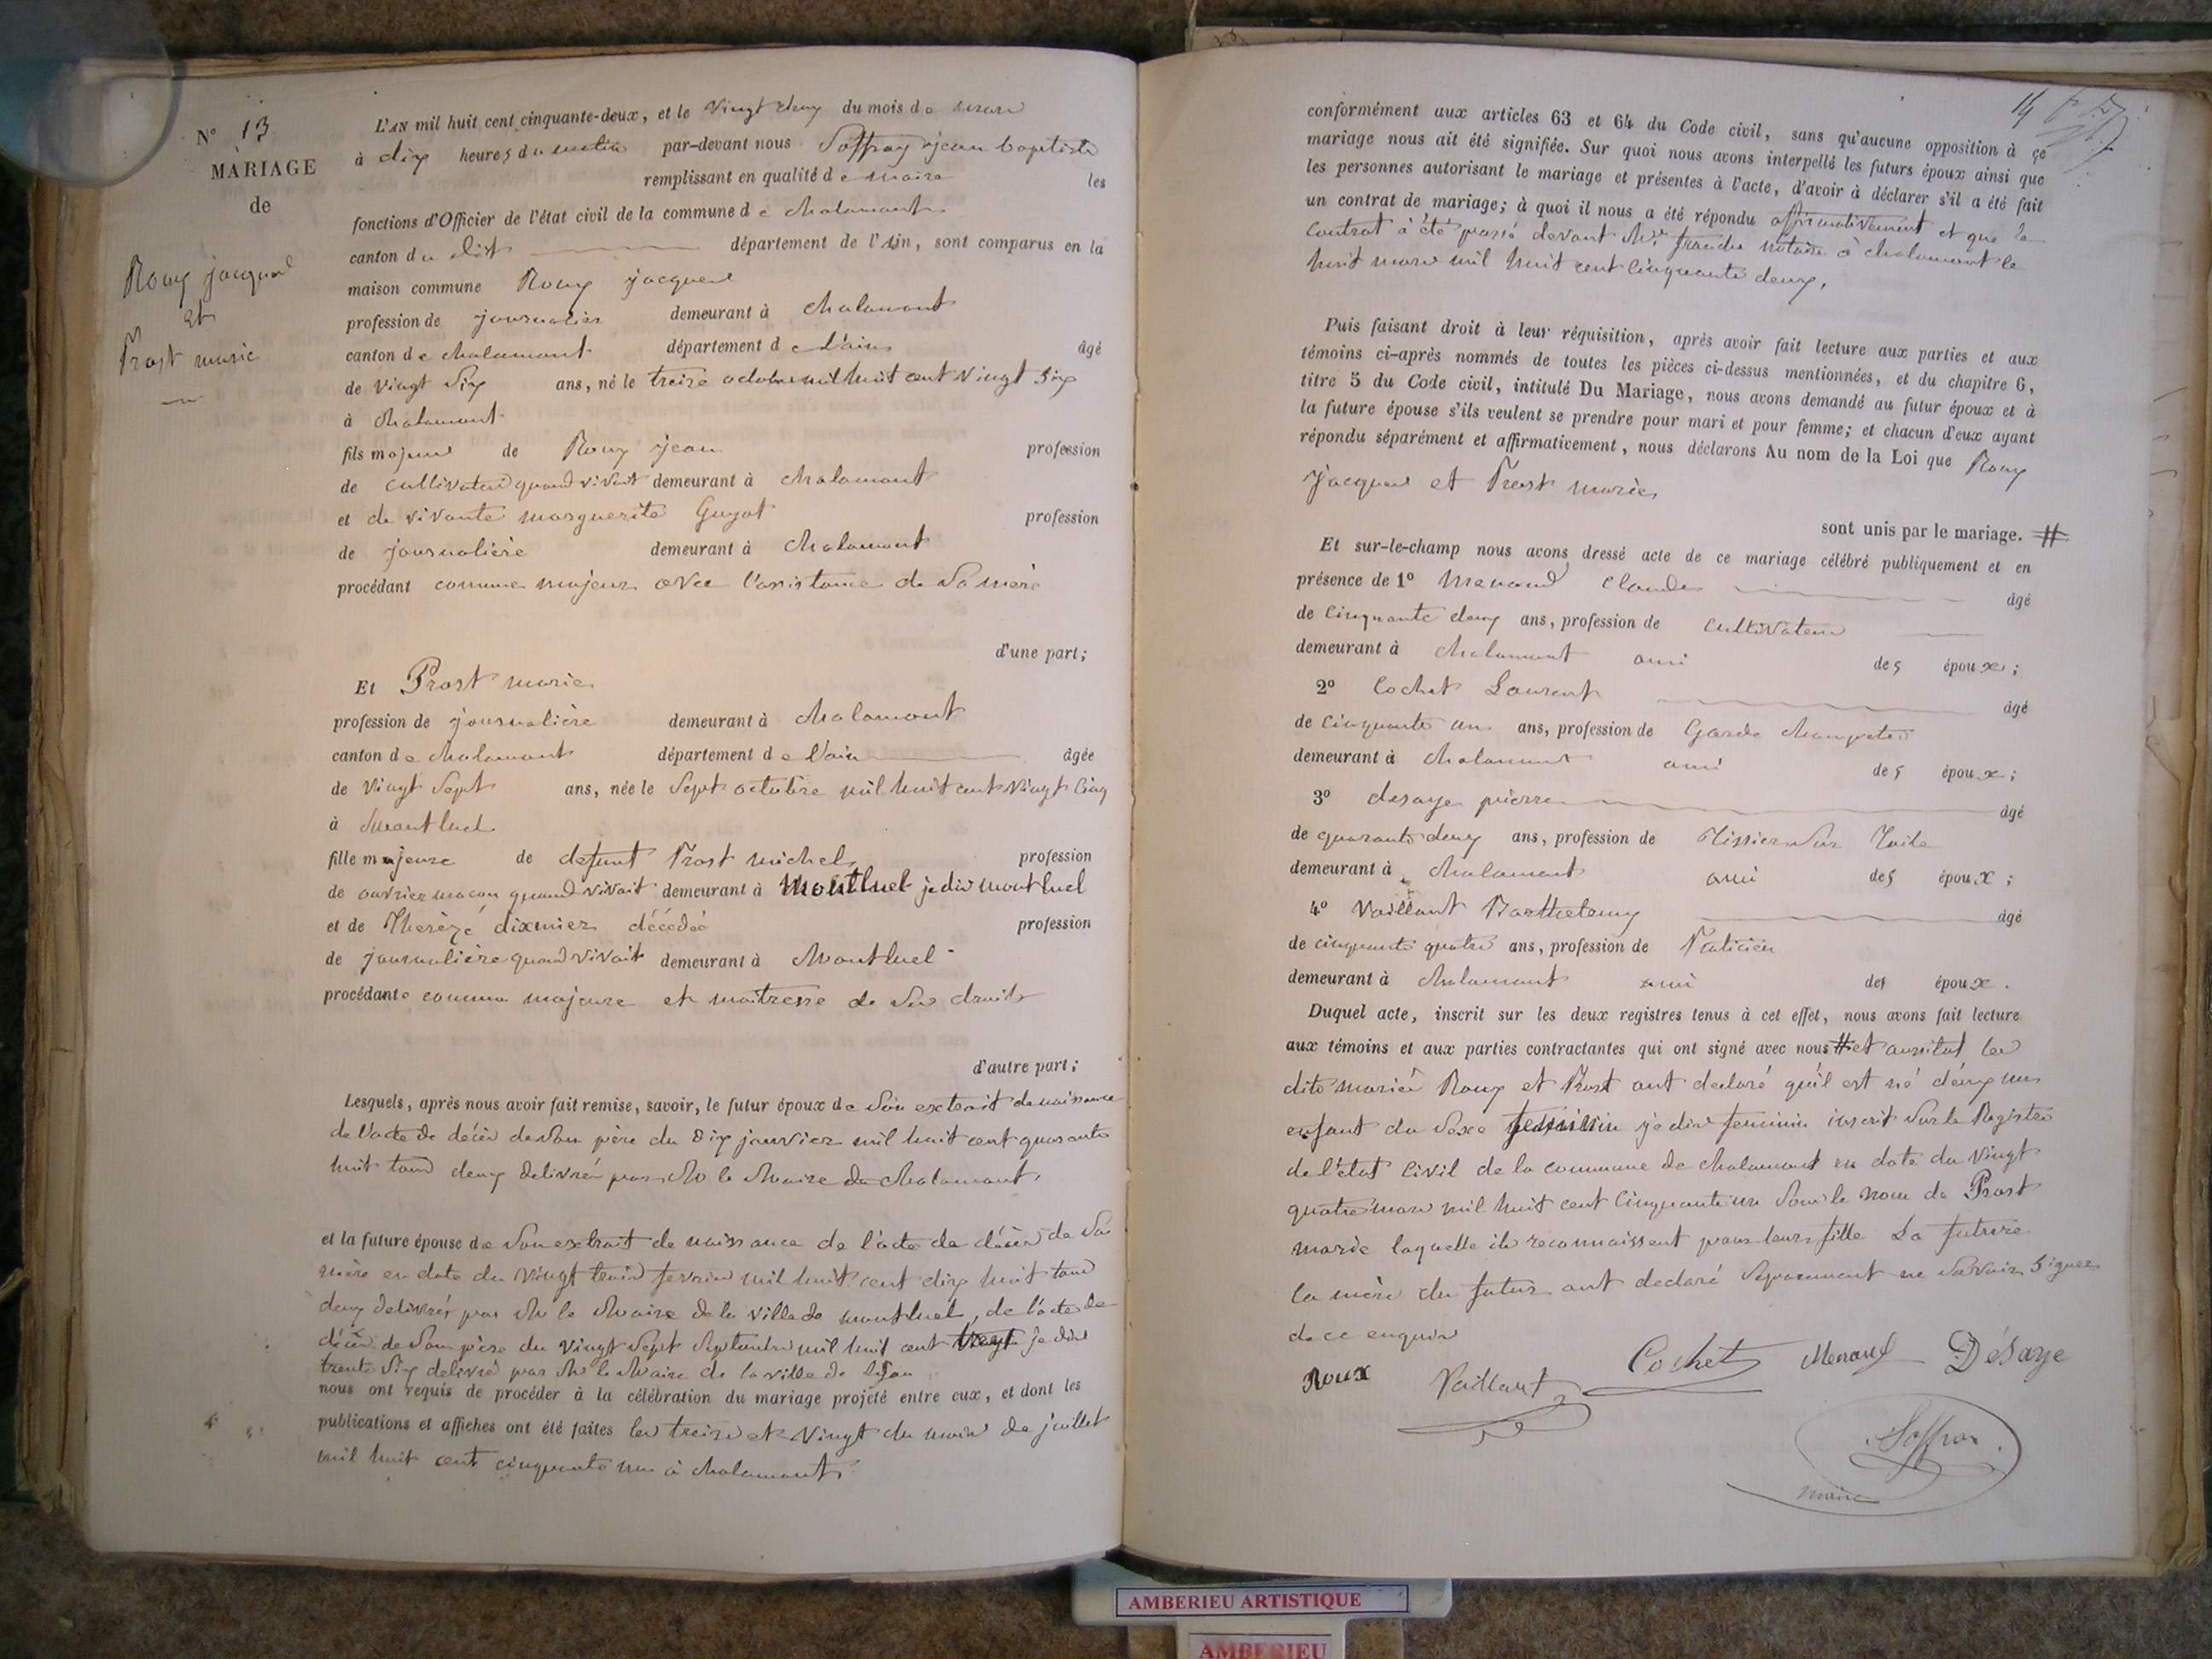 N° 13
MARIAGE
de
Roux jacques
et
Prost marie
L'AN mil huit cent cinquante-deux, et le vingt deux du mois de mars
à dix heures du matin par-devant nous Soffray jean baptiste
remplissant en qualité de maire les
fonctions d'Officier de l'état civil de la commune de chalamont
canton du dit département de l'Ain, sont comparus en la
maison commune Roux jacques
profession de journalier demeurant à chalamont
canton de chalamont département de l'ain âgé
de vingt six ans, né le treize octobre mil huit cent vingt six
à chalamont
fils majeur de Roux jean profession
de cultivateur quand vivait demeurant à chalamont
et de vivante marguerite Guyot profession
de journalière demeurant à chalamont
procédant comme majeur avec l'assistance de sa mère
d'une part;
Et Prost marie
profession de journalière demeurant à chalamont
canton de chalamont département de l'ain âgée
de vingt sept ans, née le sept octobre mil huit cent vingt cinq
à montluel
fille majeure de defunt Prost michel profession
de ouvrier maçon quand vivait demeurant à Montluel je dis montluel
et de Thérèze dixmier décédée profession
de journalière quand vivait demeurant à Montluel
procédante comme majeure et maitresse de ses droits
d'autre part;
Lesquels, après nous avoir fait remise, savoir, le futur époux de son extrait de naissance
de l'acte de décès de son père du dix janvier mil huit cent quarante
huit tous deux delivrés par Mr le Maire de chalamont.
et la future épouse de son extrait de naissance de l'acte de décès de sa
mère en date du vingt trois fevrier mil huit cent dix huit tous
deux delivrés par Mr le Maire de la ville de montluel, de l'acte de
décès de son père du vingt sept septembre mil huit cent vingt je dis
trente six delivré par Mr le Maire de la ville de Lyon
nous ont requis de procéder à la célébration du mariage projeté entre eux, et dont les
publications et affiches ont été faites les treize et vingt du mois de juillet
mil huit cent cinquante un à chalamont
14
conformément aux articles 63 et 64 du Code civil, sans qu'aucune opposition à ce
mariage nous ait été signifiée. Sur quoi nous avons interpellé les futurs époux ainsi que
les personnes autorisant le mariage et présentes à l'acte, d'avoir à déclarer s'il a été fait
un contrat de mariage; à quoi il nous a été répondu affirmativement et que le
contrat à été passé devant Me notaire à chalamont le
huit mars mil huit cent cinquante deux.
Puis faisant droit à leur réquisition, après avoir fait lecture aux parties et aux
témoins ci-après nommés de toutes les pièces ci-dessus mentionnées, et du chapitre 6,
titre 5 du Code civil, intitulé Du Mariage, nous avons demandé au futur époux et à
la future épouse s'ils veulent se prendre pour mari et pour femme; et chacun d'eux ayant
répondu séparément et affirmativement, nous déclarons Au nom de la Loi que Roux
Jacques et Prost marie
sont unis par le mariage. #
Et sur-le-champ nous avons dressé acte de ce mariage célébré publiquement et en
présence de 1° Menaud Claude âgé
de cinquante deux ans, profession de cultivateur
demeurant à chalamont ami des époux;
2° Cochet Laurent âgé
de cinquante un ans, profession de Garde champetre
demeurant à chalamont ami des époux;
3° desaye pierre âgé
de quarante deux ans, profession de Tissier sur Toile
demeurant à chalamont ami des époux;
4° Vaillant Barthelemy âgé
de cinquante quatre ans, profession de Praticien
demeurant à chalamont ami des époux.
Duquel acte, inscrit sur les deux registres tenus à cet effet, nous avons fait lecture
aux témoins et aux parties contractantes qui ont signé avec nous # et aussitot les
dits mariés Roux et Prost ont declaré qu'il est né d'eux un
enfant du sexe feminin je dis feminin inscrit sur le Registre
de l'état civil de la commune de chalamont en date du vingt
quatre mars mil huit cent cinquante un sous le nom de Prost
marie laquelle ils reconnaissent pour leur fille La future
la mère du futur ont declaré séparement ne savoir signer
de ce enquis
Roux Vaillant Cochet Menaud Désaye
Soffray
maire
AMBERIEU ARTISTIQUE
AMBERIEU